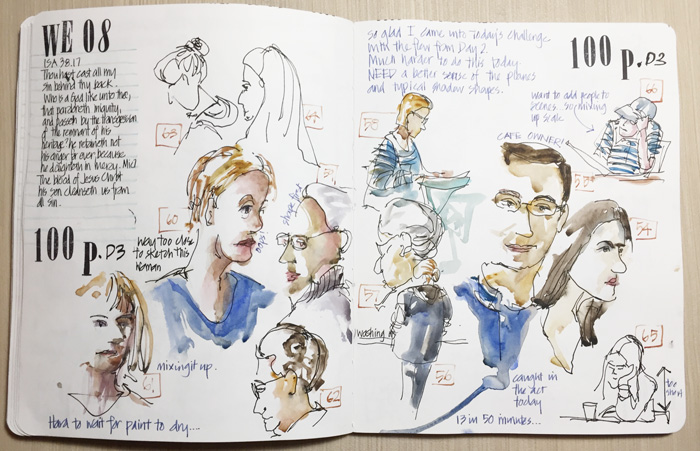 WE 08
ISA 38.17
Thou hast cast all my
sin behind thy back.
Who is a God like unto thee,
that pardoneth iniquity,
and passeth by the transgression
of the remnant of his
heritage? he retaineth not
his anger for ever, because
he delighteth in mercy. Mic 7
The blood of Jesus Christ
his son cleanseth us from
all sin.
100 p. D3
way too close
to sketch this
woman
63
64
60
oops!
shape first
59
61
mixing it up.
62
Hard to wait for paint to dry....
So glad I came into today's challenge
with the flow from Day 2.
Much harder to do this today.
NEED a better sense of the planes
and typical shadow shapes.
100 p. D3
want to add people to
scenes. so mixing
up scale
66
58
CAFE OWNER!
53
54
57
washing
56
65
too
short
caught in
the act
today
13 in 50 minutes...